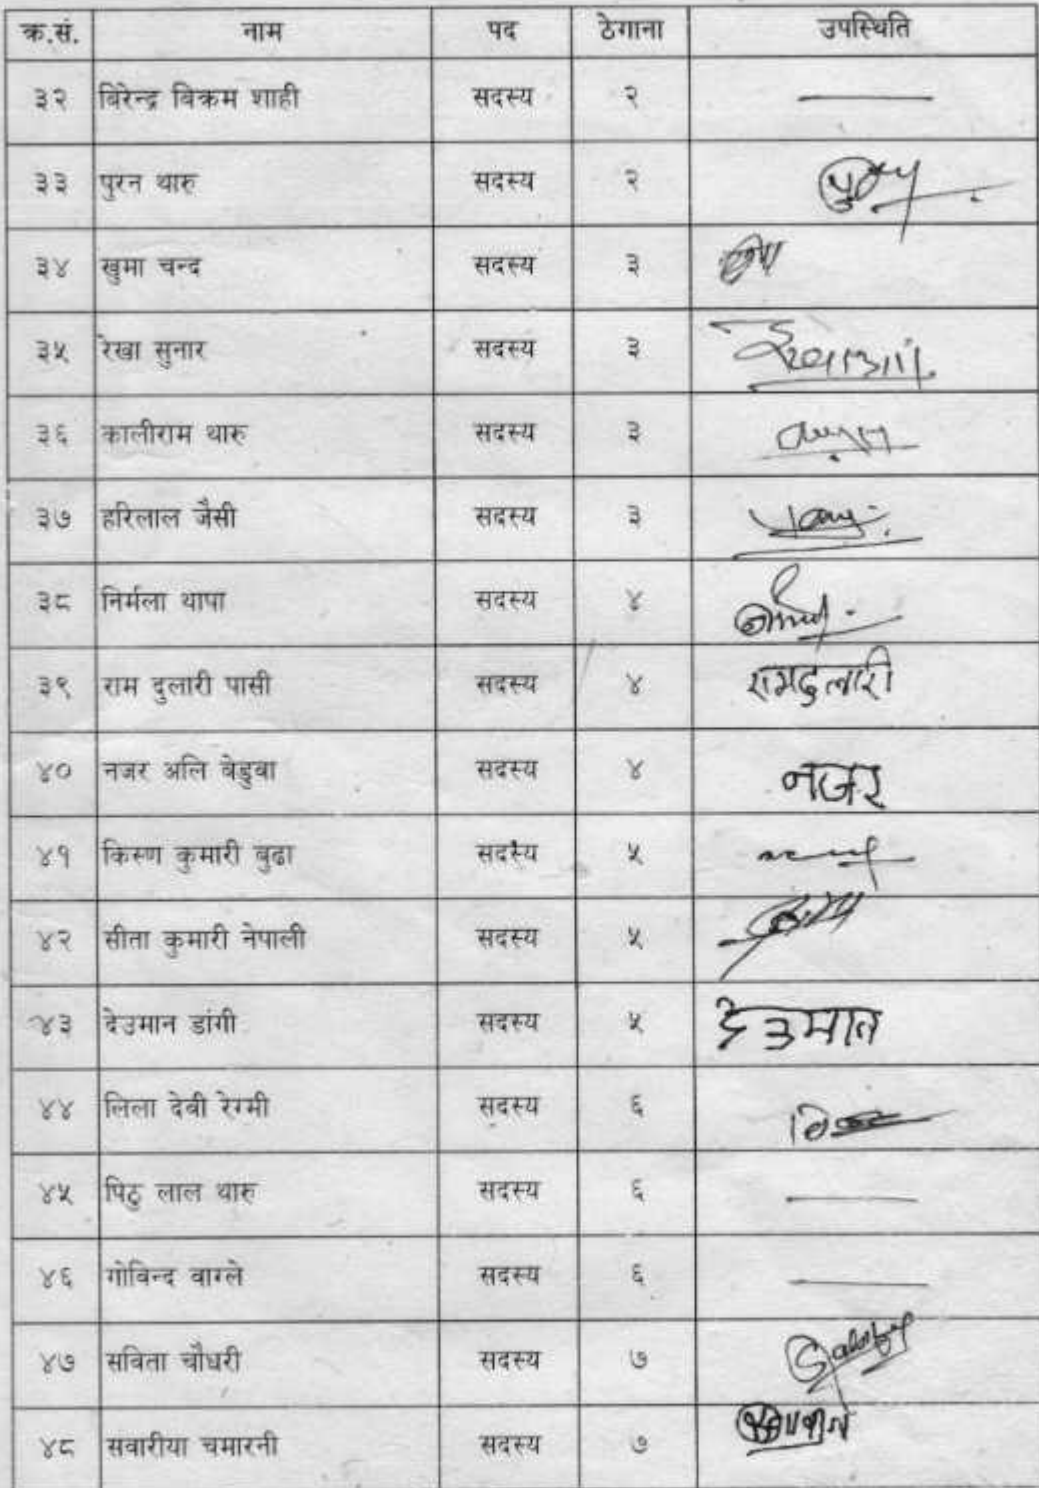 क्र.सं. नाम पद ठेगाना उपस्थिति
३२ बिरेन्द्र बिक्रम शाही सदस्य २
३३ पुरन थारु सदस्य २
३४ खुमा चन्द सदस्य ३
३५ रेखा सुनार सदस्य ३
३६ कालीराम थारु सदस्य ३
३७ हरिलाल जैसी सदस्य ३
३८ निर्मला थापा सदस्य ४
३९ राम दुलारी पासी सदस्य ४ रामदुलारी
४० नजर अलि बेडुवा सदस्य ४ नजर
४१ किस्ण कुमारी बुढा सदस्य ५
४२ सीता कुमारी नेपाली सदस्य ५
४३ देउमान डांगी सदस्य ५ देउमान
४४ लिला देबी रेग्मी सदस्य ६
४५ पिठु लाल थारु सदस्य ६
४६ गोबिन्द वाग्ले सदस्य ६
४७ सबिता चौधरी सदस्य ७
४८ सवारीया चमारनी सदस्य ७